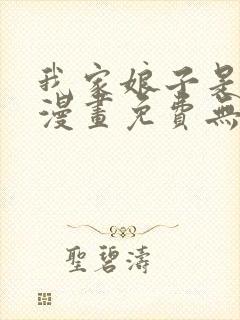 我家娘子是
漫畫免費無
聖碧濤